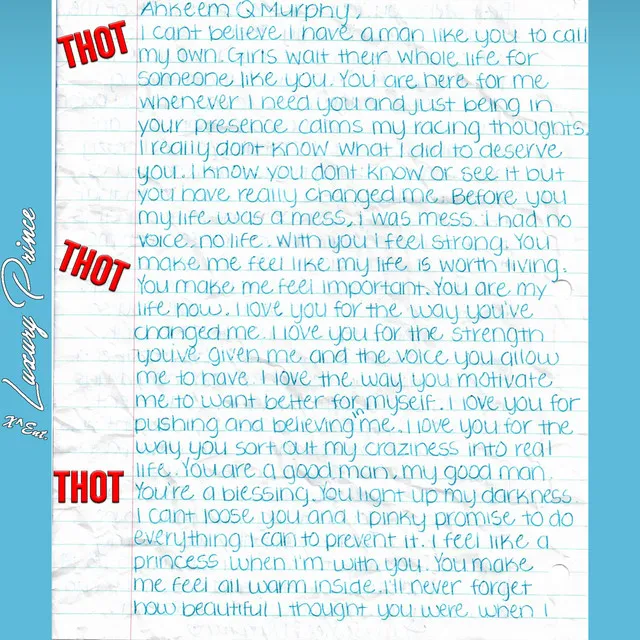 Ahkeem Q Murphy,
I cant believe I have a man like you to call
my own. Girls wait their whole life for
someone like you. You are here for me
whenever I need you and just being in
your presence calms my racing thoughts.
I really dont know what I did to deserve
you. I know you dont know or see it but
you have really changed me. Before you
my life was a mess, I was mess. I had no
voice, no life. With you I feel strong. You
make me feel like my life is worth living.
You make me feel important. You are my
life now. I love you for the way you've
changed me. I love you for the strength
you've given me and the voice you allow
me to have. I love the way you motivate
me to want better for myself. I love you for
pushing and believing in me. I love you for the
way you sort out my craziness into real
life. You are a good man, my good man.
You're a blessing. You light up my darkness.
I cant loose you and I pinky promise to do
everything I can to prevent it. I feel like a
princess when I'm with you. You make
me feel all warm inside. I'll never forget
how beautiful I thought you were when I
THOT
THOT
THOT
Luxury Prince
X^ Ent.